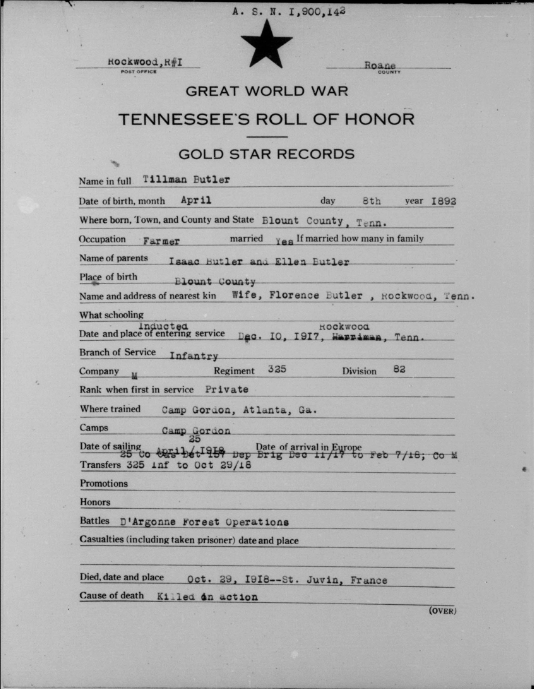 A. S. N. I,900,142
Rockwood,R#I
POST OFFICE
Roane
COUNTY
GREAT WORLD WAR
TENNESSEE'S ROLL OF HONOR
GOLD STAR RECORDS
Name in full Tillman Butler
Date of birth, month April day 8th year I892
Where born, Town, and County and State Blount County, Tenn.
Occupation Farmer married Yes If married how many in family
Name of parents Isaac Butler and Ellen Butler
Place of birth Blount County
Name and address of nearest kin Wife, Florence Butler , Rockwood, Tenn.
What schooling
Inducted Rockwood
Date and place of entering service Dec. IO, I9I7, Harriman, Tenn.
Branch of Service Infantry
Company M Regiment 325 Division 82
Rank when first in service Private
Where trained Camp Gordon, Atlanta, Ga.
Camps Camp Gordon
25
Date of sailing April/I9I8 Date of arrival in Europe
25 Co 157 Dep Brig Dec 11/17 to Feb 7/18; Co M
Transfers 325 Inf to Oct 29/18
Promotions
Honors
Battles D'Argonne Forest Operations
Casualties (including taken prisoner) date and place
Died, date and place Oct. 29, I9I8--St. Juvin, France
Cause of death Killed in action
(OVER)